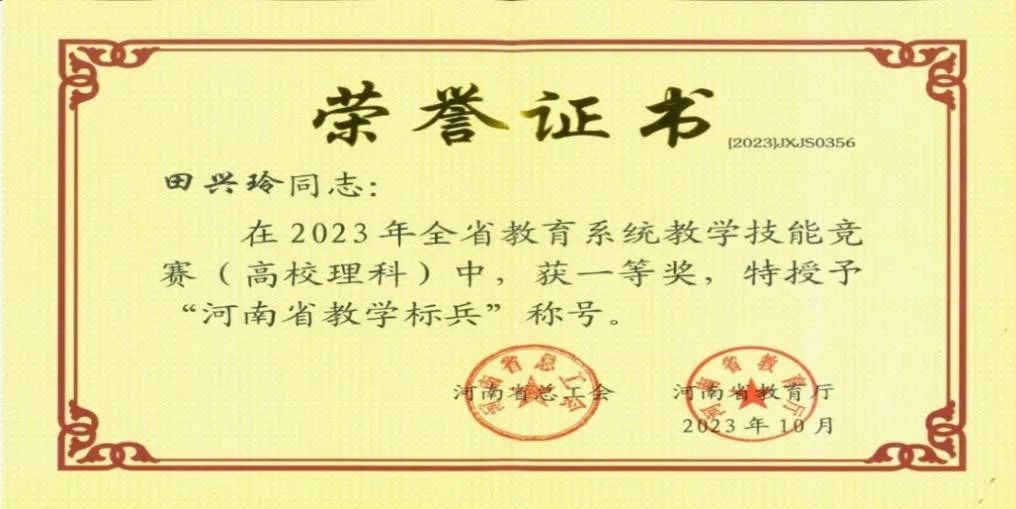 荣誉证书
[2023]JXJS0356
田兴玲同志：
在2023年全省教育系统教学技能竞
赛（高校理科）中，获一等奖，特授予
“河南省教学标兵”称号。
河南省总工会
河南省教育厅
河南省总工会
河南省教育厅
2023年10月